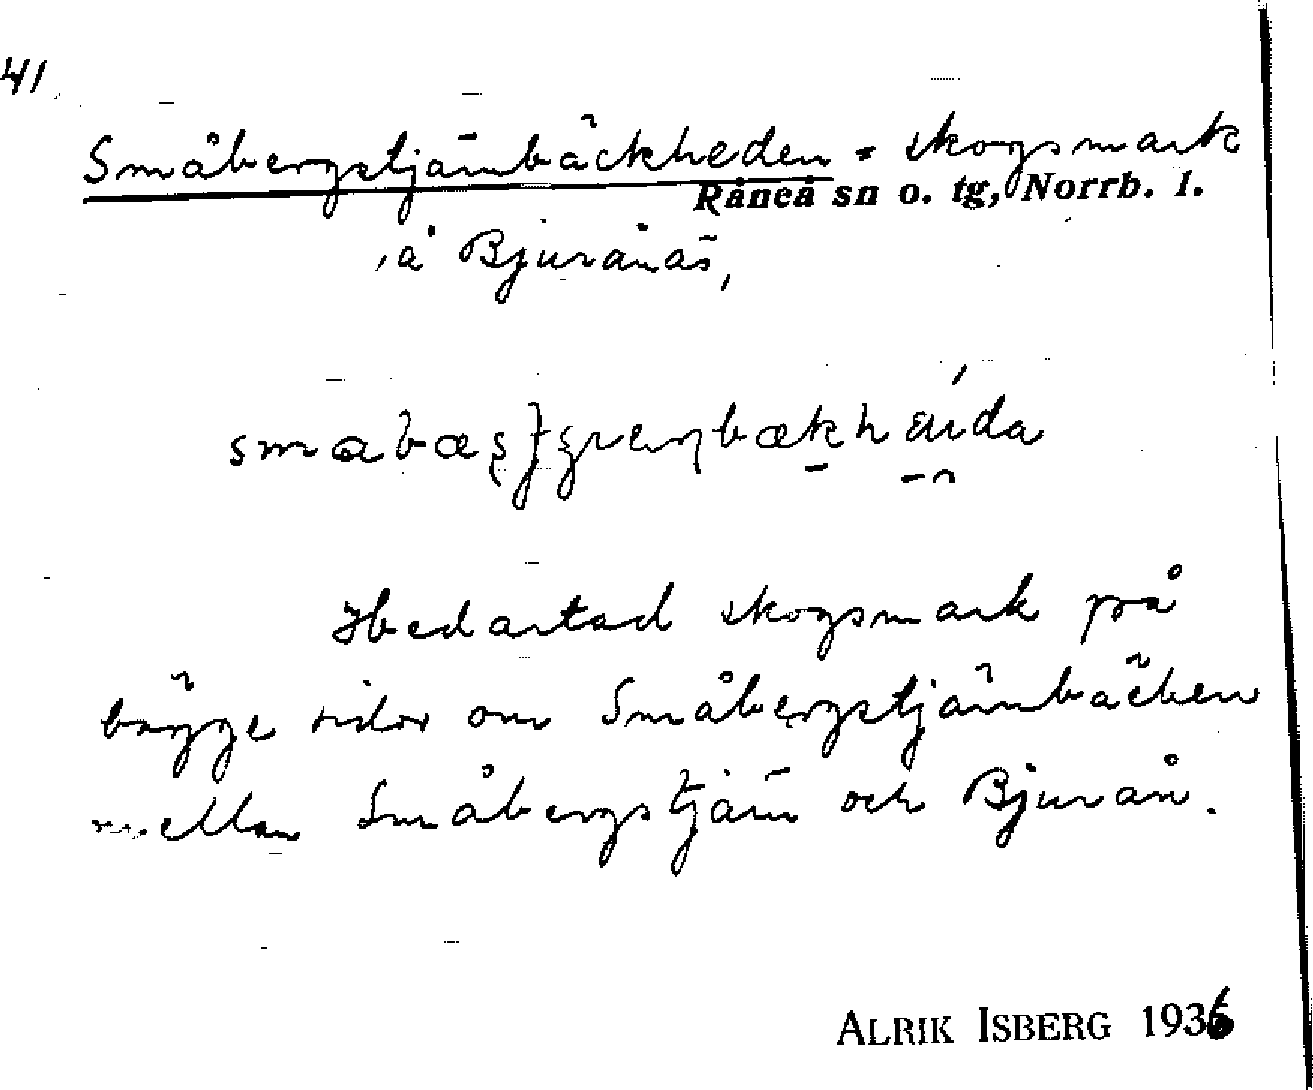 41
Småbergstjärnbäckheden = skogsmark
Råneå sn o. tg, Norrb. l.
å Bjurånäs,
Hedartad skogsmark på
bägge sidor om Småbergstjärnbäcken
mellan Småbergstjärn och Bjurån.
ALRIK ISBERG 1936